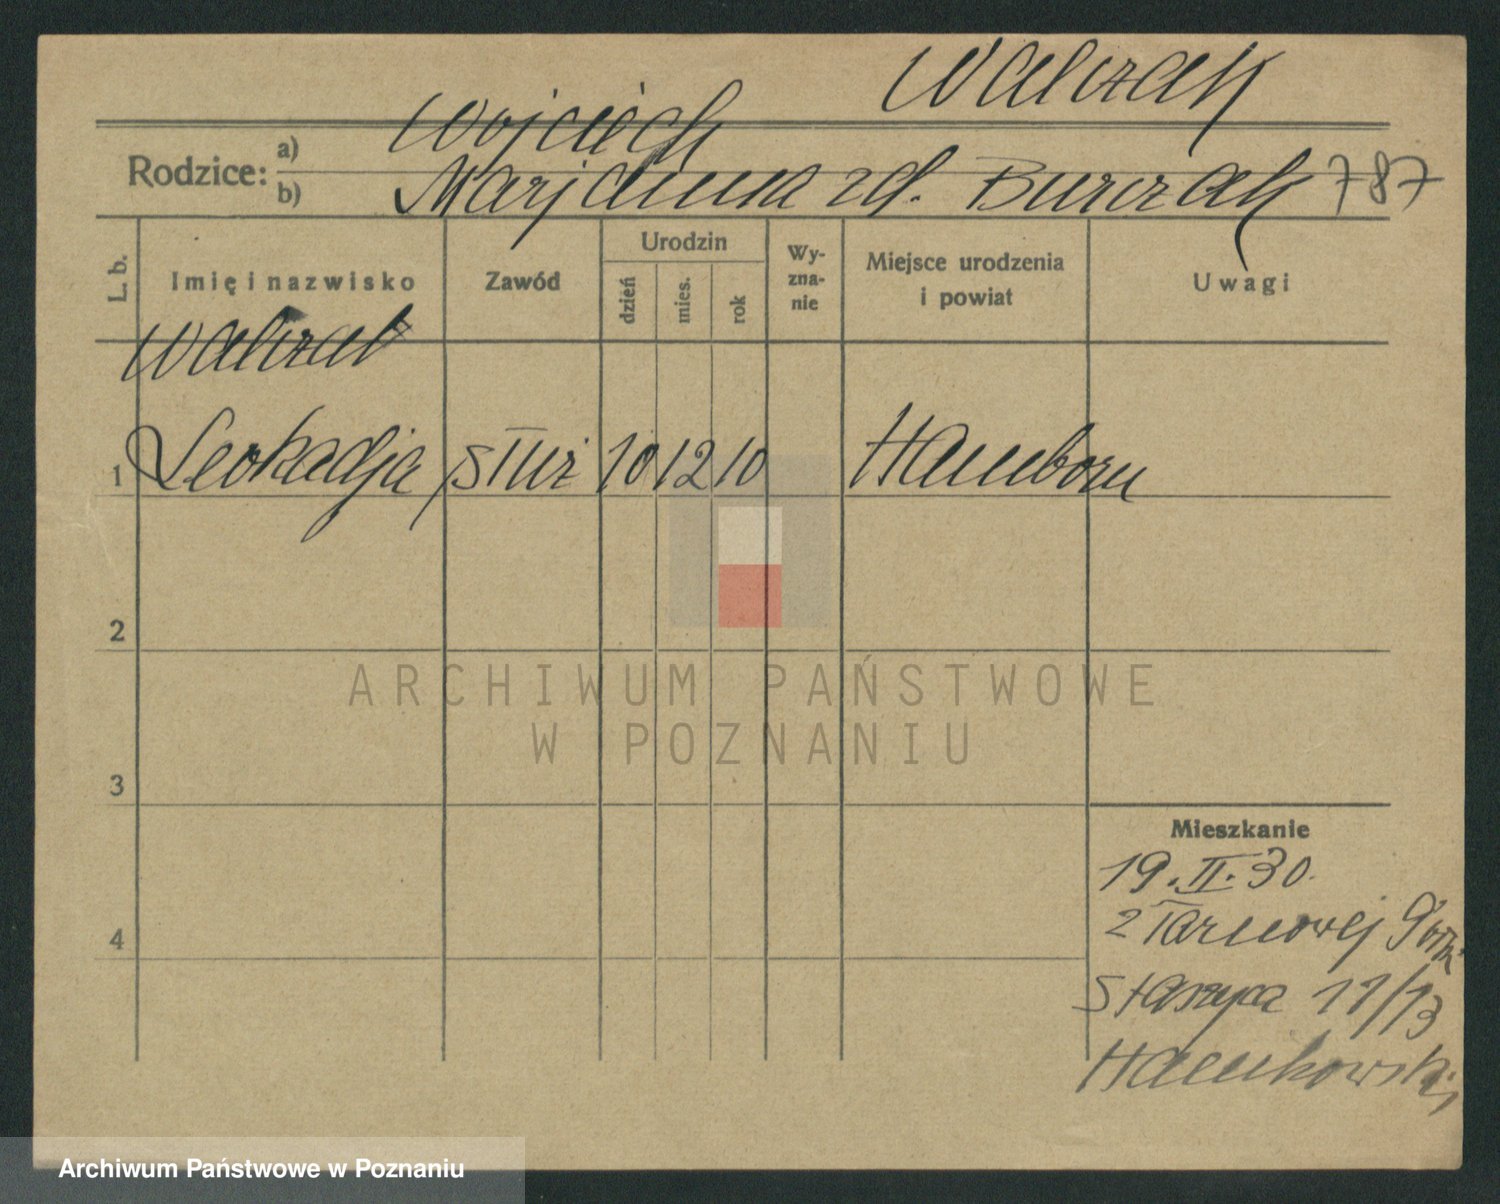 Walczak
Wojciech
Rodzice: a)
b) Marjanna zd. Burczak 787
L. b. Imię i nazwisko Zawód Urodzin dzień mies. rok Wy-zna-nie Miejsce urodzenia i powiat Uwagi
Walczak
1 Leokadja służ 10 12 10 Hamborn
2
ARCHIWUM PAŃSTWOWE
W POZNANIU
3
Mieszkanie
19.II.30.
4 z Tarnowej
Staszyca 11/13
Archiwum Państwowe w Poznaniu